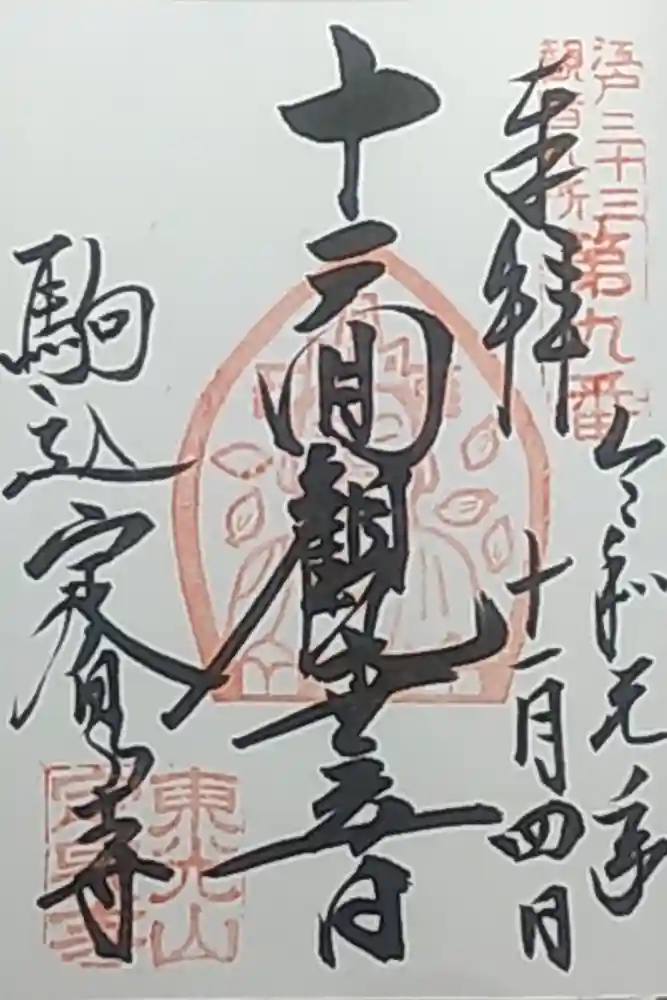 江戸三十三
観音札所
第九番
奉拝
令和元年
十一月四日
十一面観世音
駒込定泉寺
東光山
定泉寺